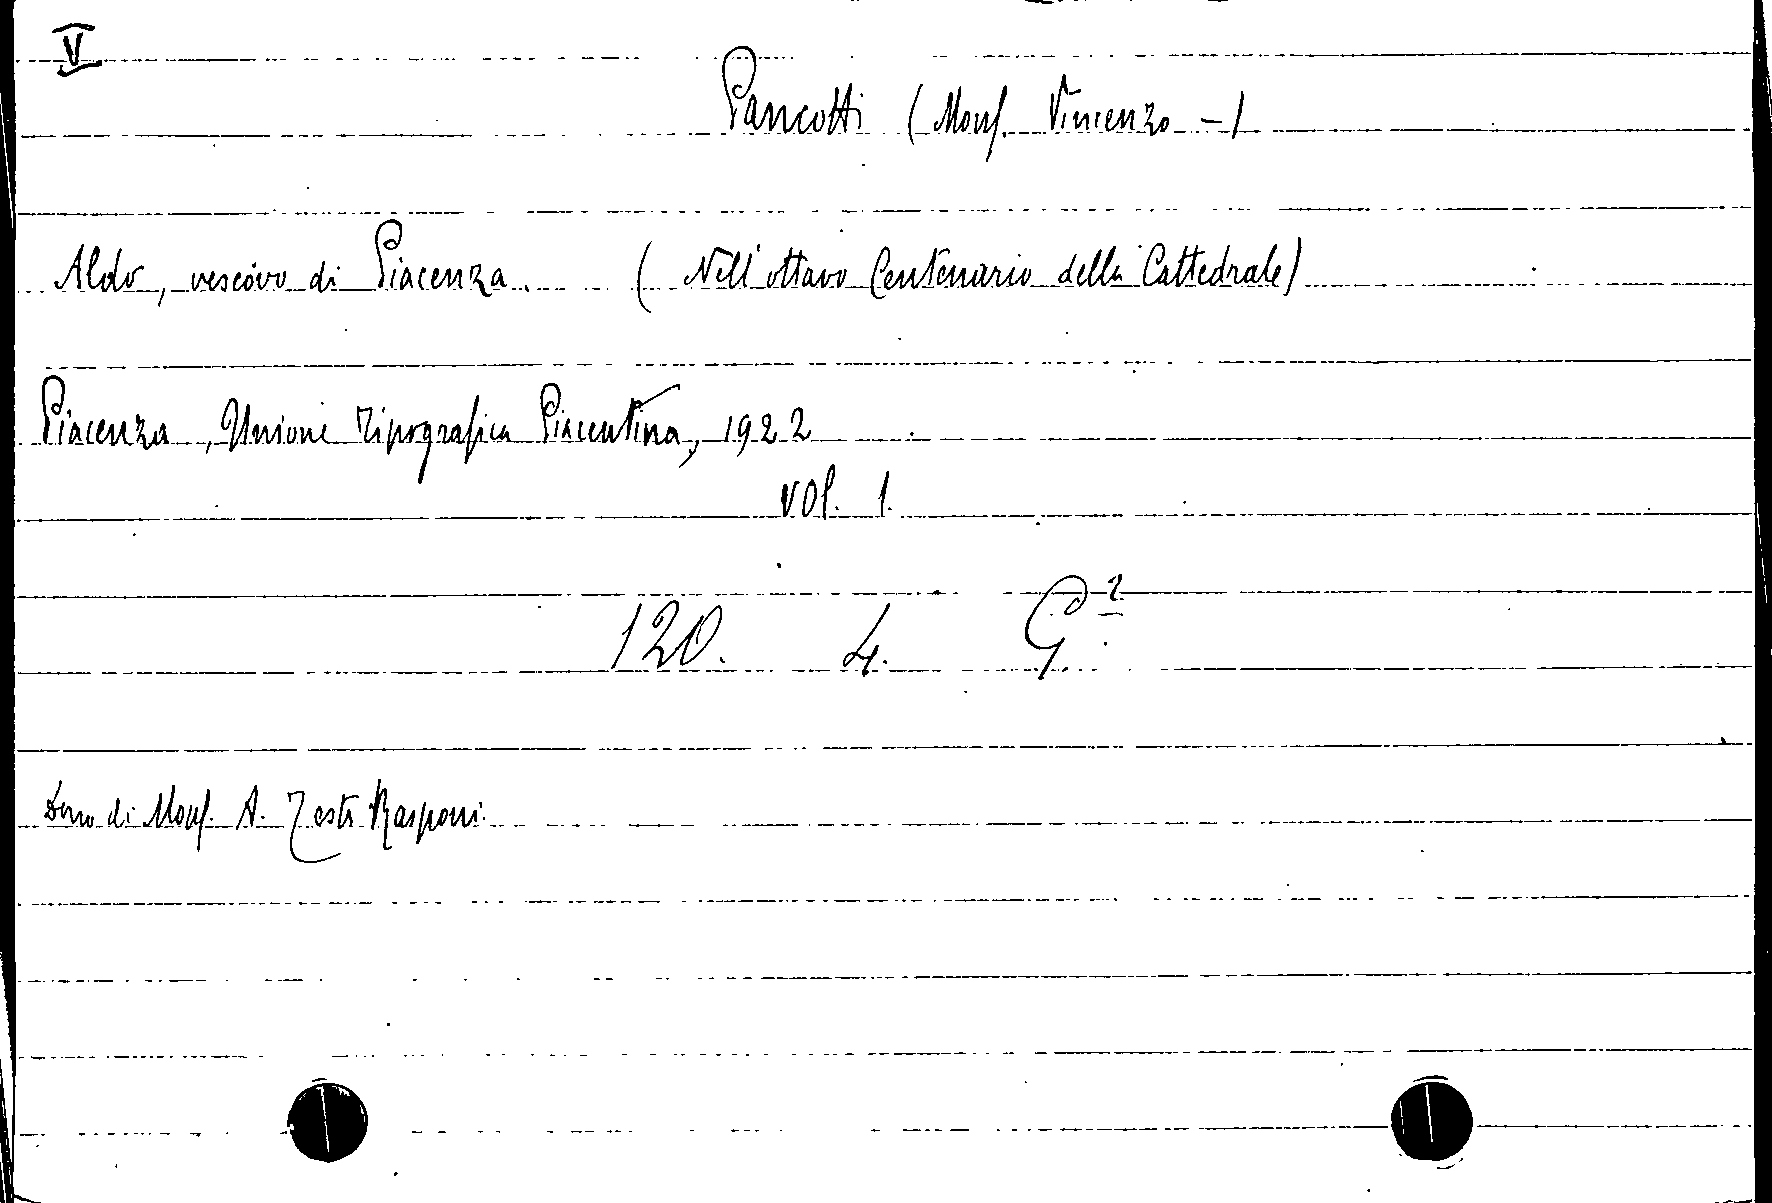 V
Pancotti (Mons. Vincenzo -)
Aldo, vescovo di Piacenza. (Nell'ottavo Centenario della Cattedrale)
Piacenza, Unione Tipografica Piacentina, 1922
vol. 1.
120. 4. G²
Dono di Mons. A. Testi Rasponi.